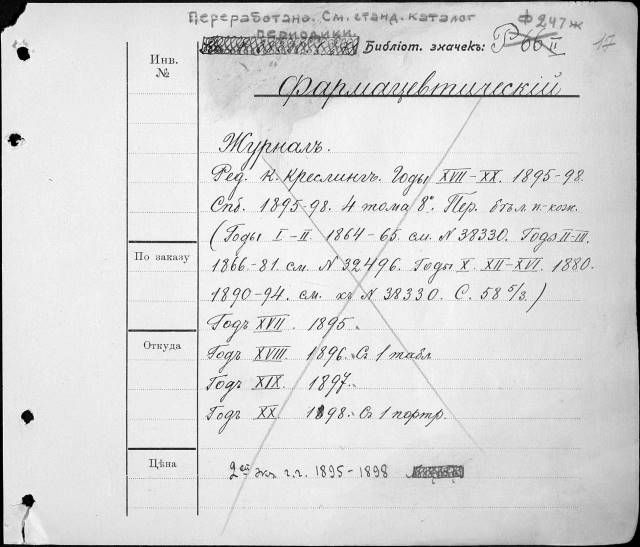 Переработано. См. станд. каталог
периодики.
Библіот. значекъ: Р 66 II
ф 247ж
17
Инв.
№
Фармацевтическій
Журналъ.
Ред. К. Креслингъ. Годы XVII-XX. 1895-98.
Спб. 1895-98. 4 тома 8º. Пер.
(Годы I-II. 1864-65. см. N 38330. Годы II-III.
По заказу
1866-81. см. N 32496. Годы X. XII-XVI. 1880.
1890-94. см. къ N 38330. С. 58 5/3.)
Годъ XVII. 1895.
Откуда
Годъ XVIII. 1896. Съ 1 табл
Годъ XIX. 1897.
Годъ XX. 1898. Съ 1 портр.
Цѣна
2ой экз г.г. 1895-1898